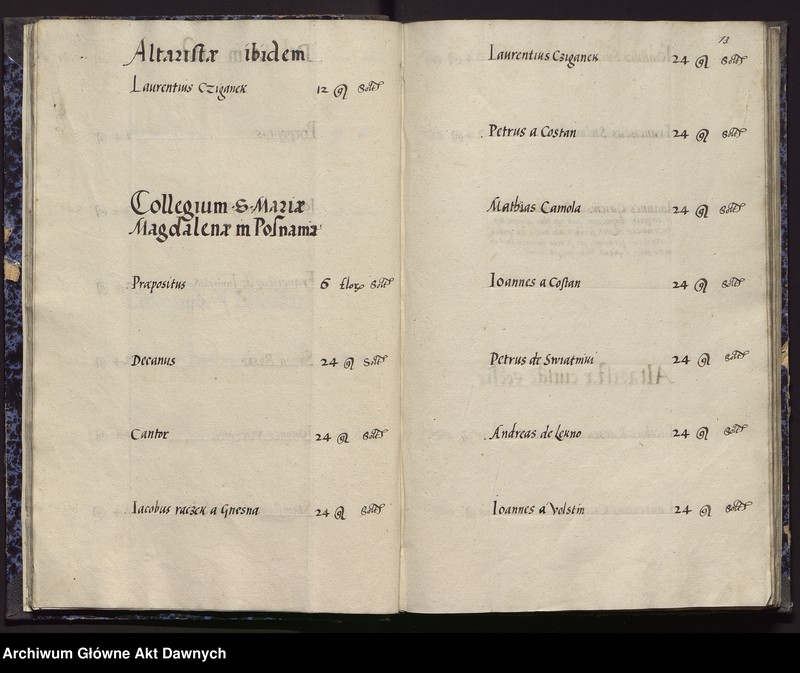 Altaristæ ibidem
Laurentius Cziganek 12 gl Soldt
Collegium · S · Mariæ
Magdalenæ in Posnania
Præpositus 6 flor Soldt
Decanus 24 gl Soldt
Cantor 24 gl Soldt
Iacobus raczek a Gnesna 24 gl Soldt
73
Laurentius Cziganek 24 gl Soldt
Petrus a Costan 24 gl Soldt
Mathias Camola 24 gl Soldt
Ioannes a Costan 24 gl Soldt
Petrus de 24 gl Soldt
Andreas de Lekno 24 gl Soldt
Ioannes a Volstin 24 gl Soldt
Archiwum Główne Akt Dawnych